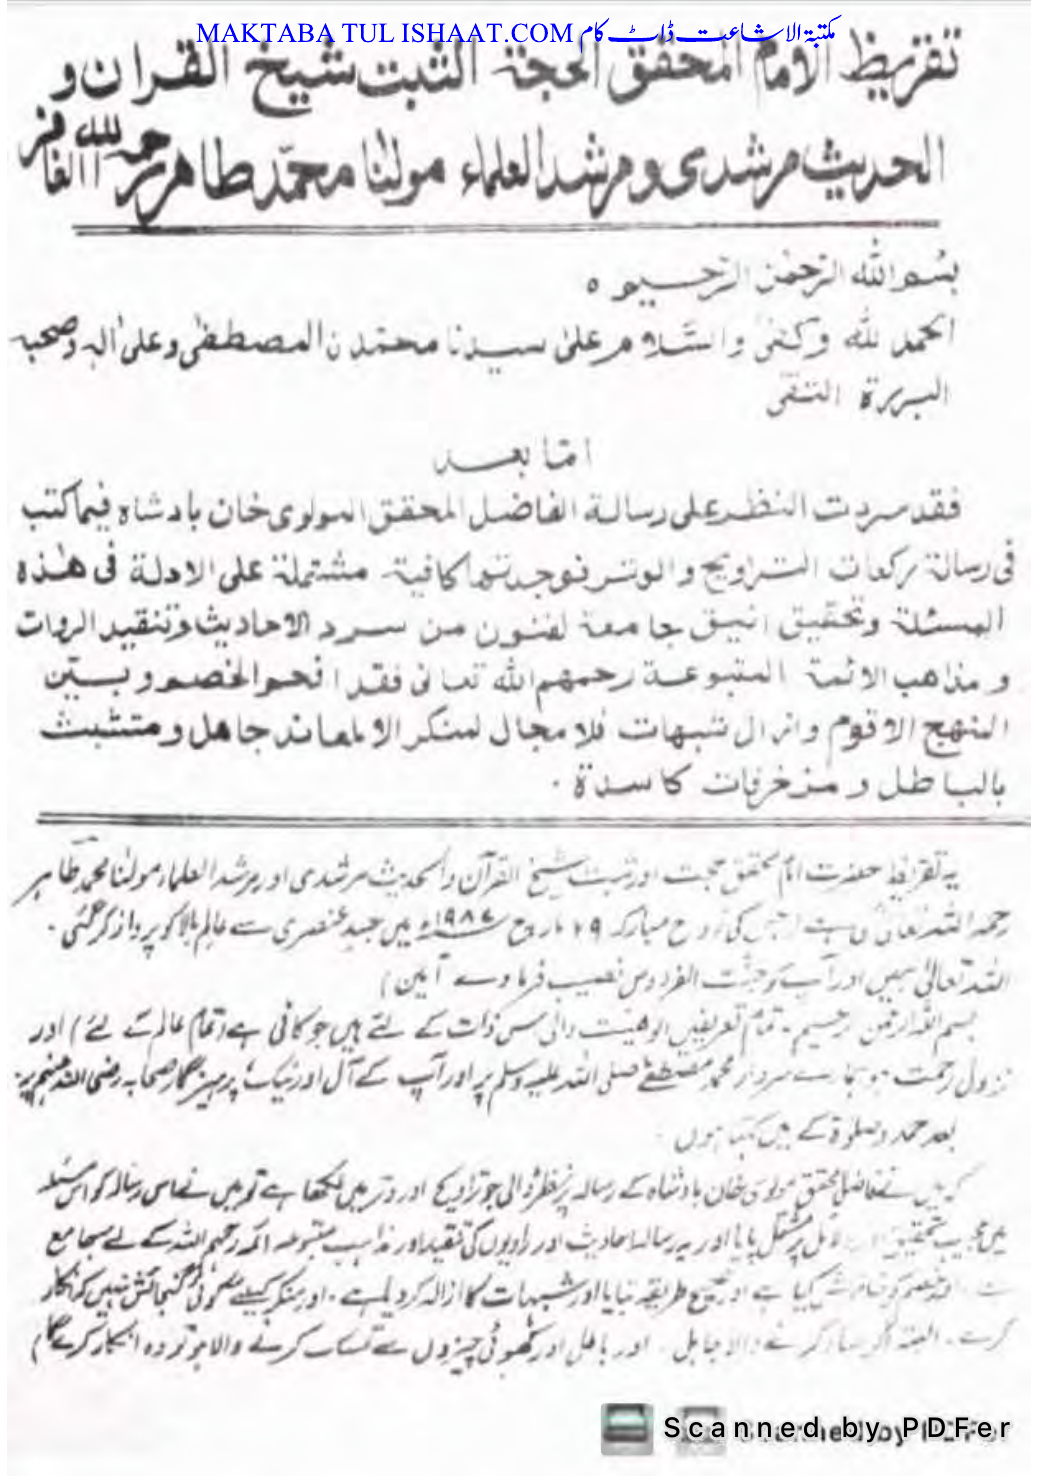 MAKTABA TUL ISHAAT.COM مکتبۃ الاشاعت ڈاٹ کام
تقریظ الامام المحقق الحجۃ الثبت شیخ القران و
الحدیث مرشدی و مرشد العلماء مولٰنا محمّد طاهر رحمہ اللہ
بسم اللہ الرّحمٰن الرّحیم ٥
الحمد للہ وکفیٰ والسّلام علیٰ سیدنا محمّد ن المصطفٰی وعلیٰ اٰلہ وصحبہ
البررة التقی
امّا بعد
فقد سردت النظر علی رسالة الفاضل المحقق المولوی خان بادشاہ فیما کتب
فی رسالة رکعات التراویح والوتر فوجدتها کافیة مشتملة علی الادلة فی هٰذہ
المسئلة وتحقیق انیق جامعة لفنون من سرد الاحادیث وتنقید الروات
و مذاهب الائمة المتبوعة رحمهم اللہ تعالیٰ فقد افحم الخصم و بیّن
النهج الاقوم وازال شبهات فلا مجال لمنکر الا معاند جاهل و متشبث
بالباطل و مزخرفات کاسدة ۔
یہ تقریظ حضرت امام محقق حجت اور ثبت شیخ القرآن والحدیث مرشدی اور مرشد العلماء مولٰنا محمد طاہر
رحمہ اللہ تعالیٰ جس کی روح مبارکہ ۲۹ مارچ ۱۹۸۷ء میں جسد عنصری سے عالم بالا کو پرواز کر گئی ۔
اللہ تعالیٰ ہمیں اور آپ کو جنّت الفردوس نصیب فرماوے آمین)
بسم اللہ الرحمٰن الرحیم ۔ تمام تعریفیں الوھیّت والی اس ذات کے لئے ہیں جو کافی ہے (تمام عالم کے لئے) اور
نزول رحمت ہو ہمارے سردار محمد مصطفےٰ صلی اللہ علیہ وسلم پر اور آپ کے آل اور نیک، پرہیزگار صحابہ رضی اللہ عنہم پر:
بعد حمد و صلوٰة کے میں کہتا ہوں
کہ میں نے فاضل محقق مولوی خان بادشاہ کے رسالہ پر نظر ڈالی جو تراویح اور وتر میں لکھا ہے تو میں نے اس رسالہ کو اس مسئلہ
میں عجیب تحقیق دلائل پر مشتمل پایا اور یہ رسالہ احادیث اور راویوں کی تنقید اور مذاہب متبوعہ ائمہ رحمہم اللہ کے لئے جامع
ہے۔ اور خصم کو خاموش کیا ہے اور صحیح طریقہ بتایا اور شبہات کا ازالہ کر دیا ہے ۔ اور منکر کیلئے کوئی گنجائش نہیں کہ انکار
کرے ۔ البتہ اگر عناد کرنے والا جاہل ۔ اور باطل اور کھوٹی چیزوں سے تمسک کرنے والا ہو تو وہ انکار کرے گا)
Scanned by PDFer